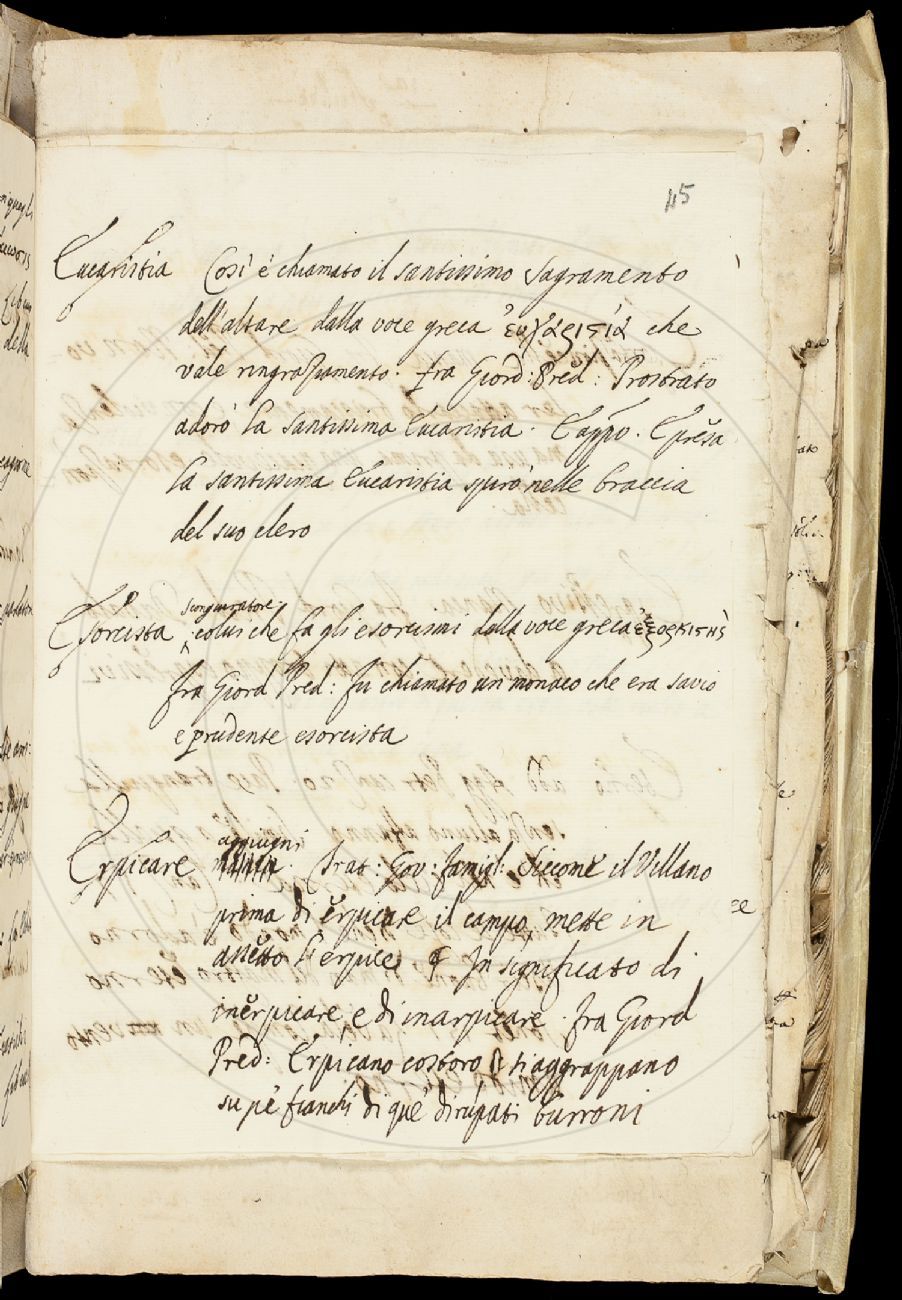 45
Eucaristia Così è chiamato il santissimo Sagramento
dell'altare dalla voce greca che
vale ringraziamento. fra Giord: Pred: Prostrato
adorò la santissima Eucaristia. E appo. E presa
la santissima Eucaristia spirò nelle braccia
del suo clero
scongiuratore.
Esorcista colui che fa gli esorcismi dalla voce greca
fra Giord Pred: fu chiamato un monaco che era savio
e prudente esorcista
aggiugni
Erpicare Trat: Gov: famigl: Siccome il Villano
prima di erpicare il campo, mette in
assetto l'erpice In significato di
inerpicare e di inarpicare. fra Giord
Pred: Erpicano costoro si aggrappano
su pe' fianchi di que' dirupati burroni